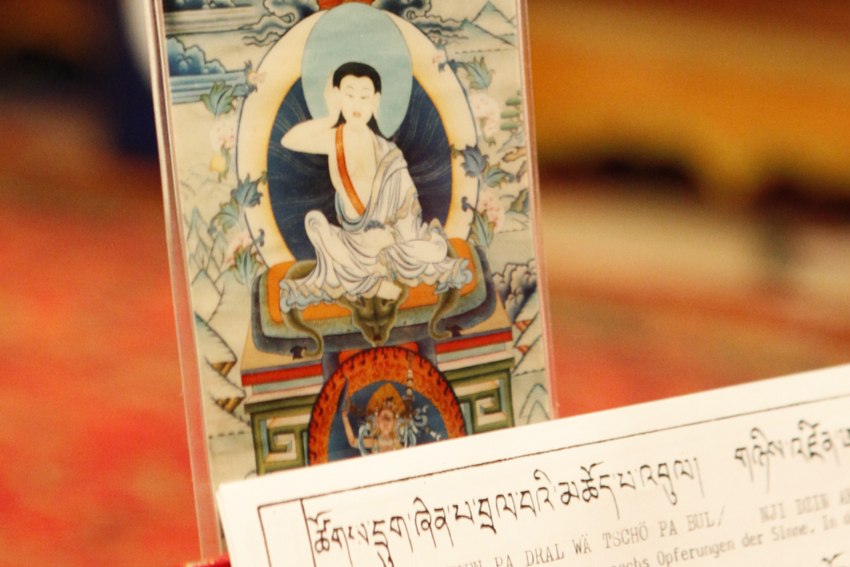 ཚོགས་དྲུག་ཞེན་པ་བྲལ་བའི་མཆོད་པ་འབུལ། གཉིས་འཛིན་
PA DRAL WÄ TSCHÖ PA BUL/ NJI DZIN
Opferungen der Sinne. In